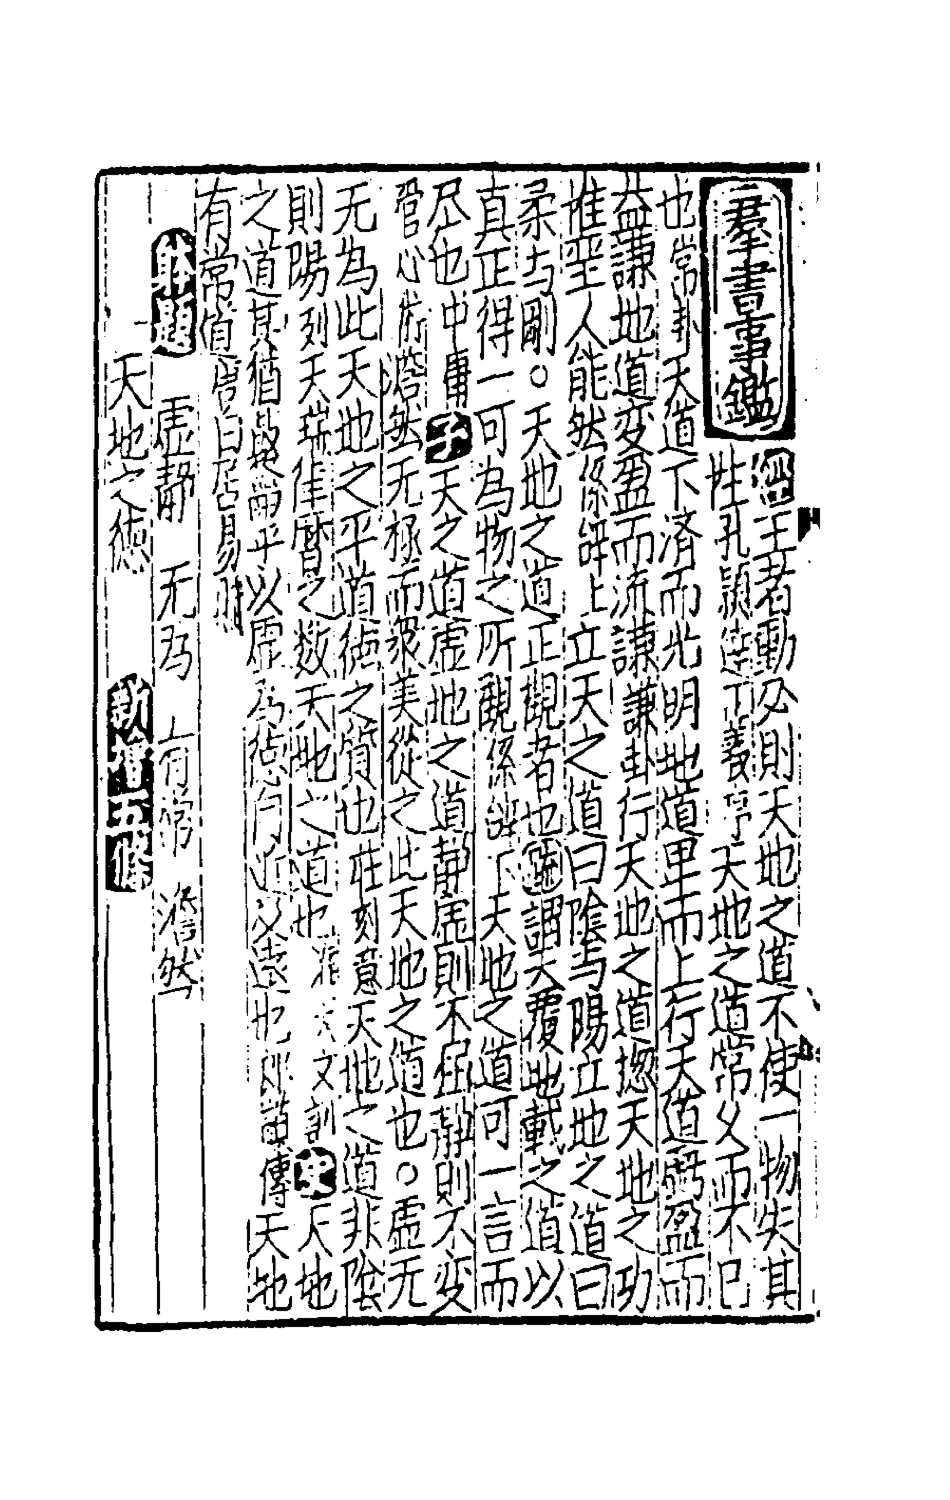 羣書事鑑
經王者動必則天地之道不使一物失其
性孔穎達正義序天地之道常久而不已
也常卦天道下济而光明地道卑而上行天道虧盈而
益謙地道変盈而流謙謙卦行天地之道揔天地之功
惟圣人能然係辞上立天之道曰陰与陽立地之道曰
柔与剛○天地之道正觀者也疏謂天覆地載之道以
真正得一可為物之所觀係辞下天地之道可一言而
尽也中庸子天之道虚地之道静虚則不屈静則不変
管心術澹然无極而衆美從之此天地之道也○虚无
无為此天地之平道德之質也莊刻意天地之道非陰
則陽列天瑞惟曆之数天地之道也淮天文訓史天地
之道其猶乎以虚為德内近父遠也郎傳天地
有常道唐白居易
体題 虚静 无為 有常 澹然
天地之德 新增五條